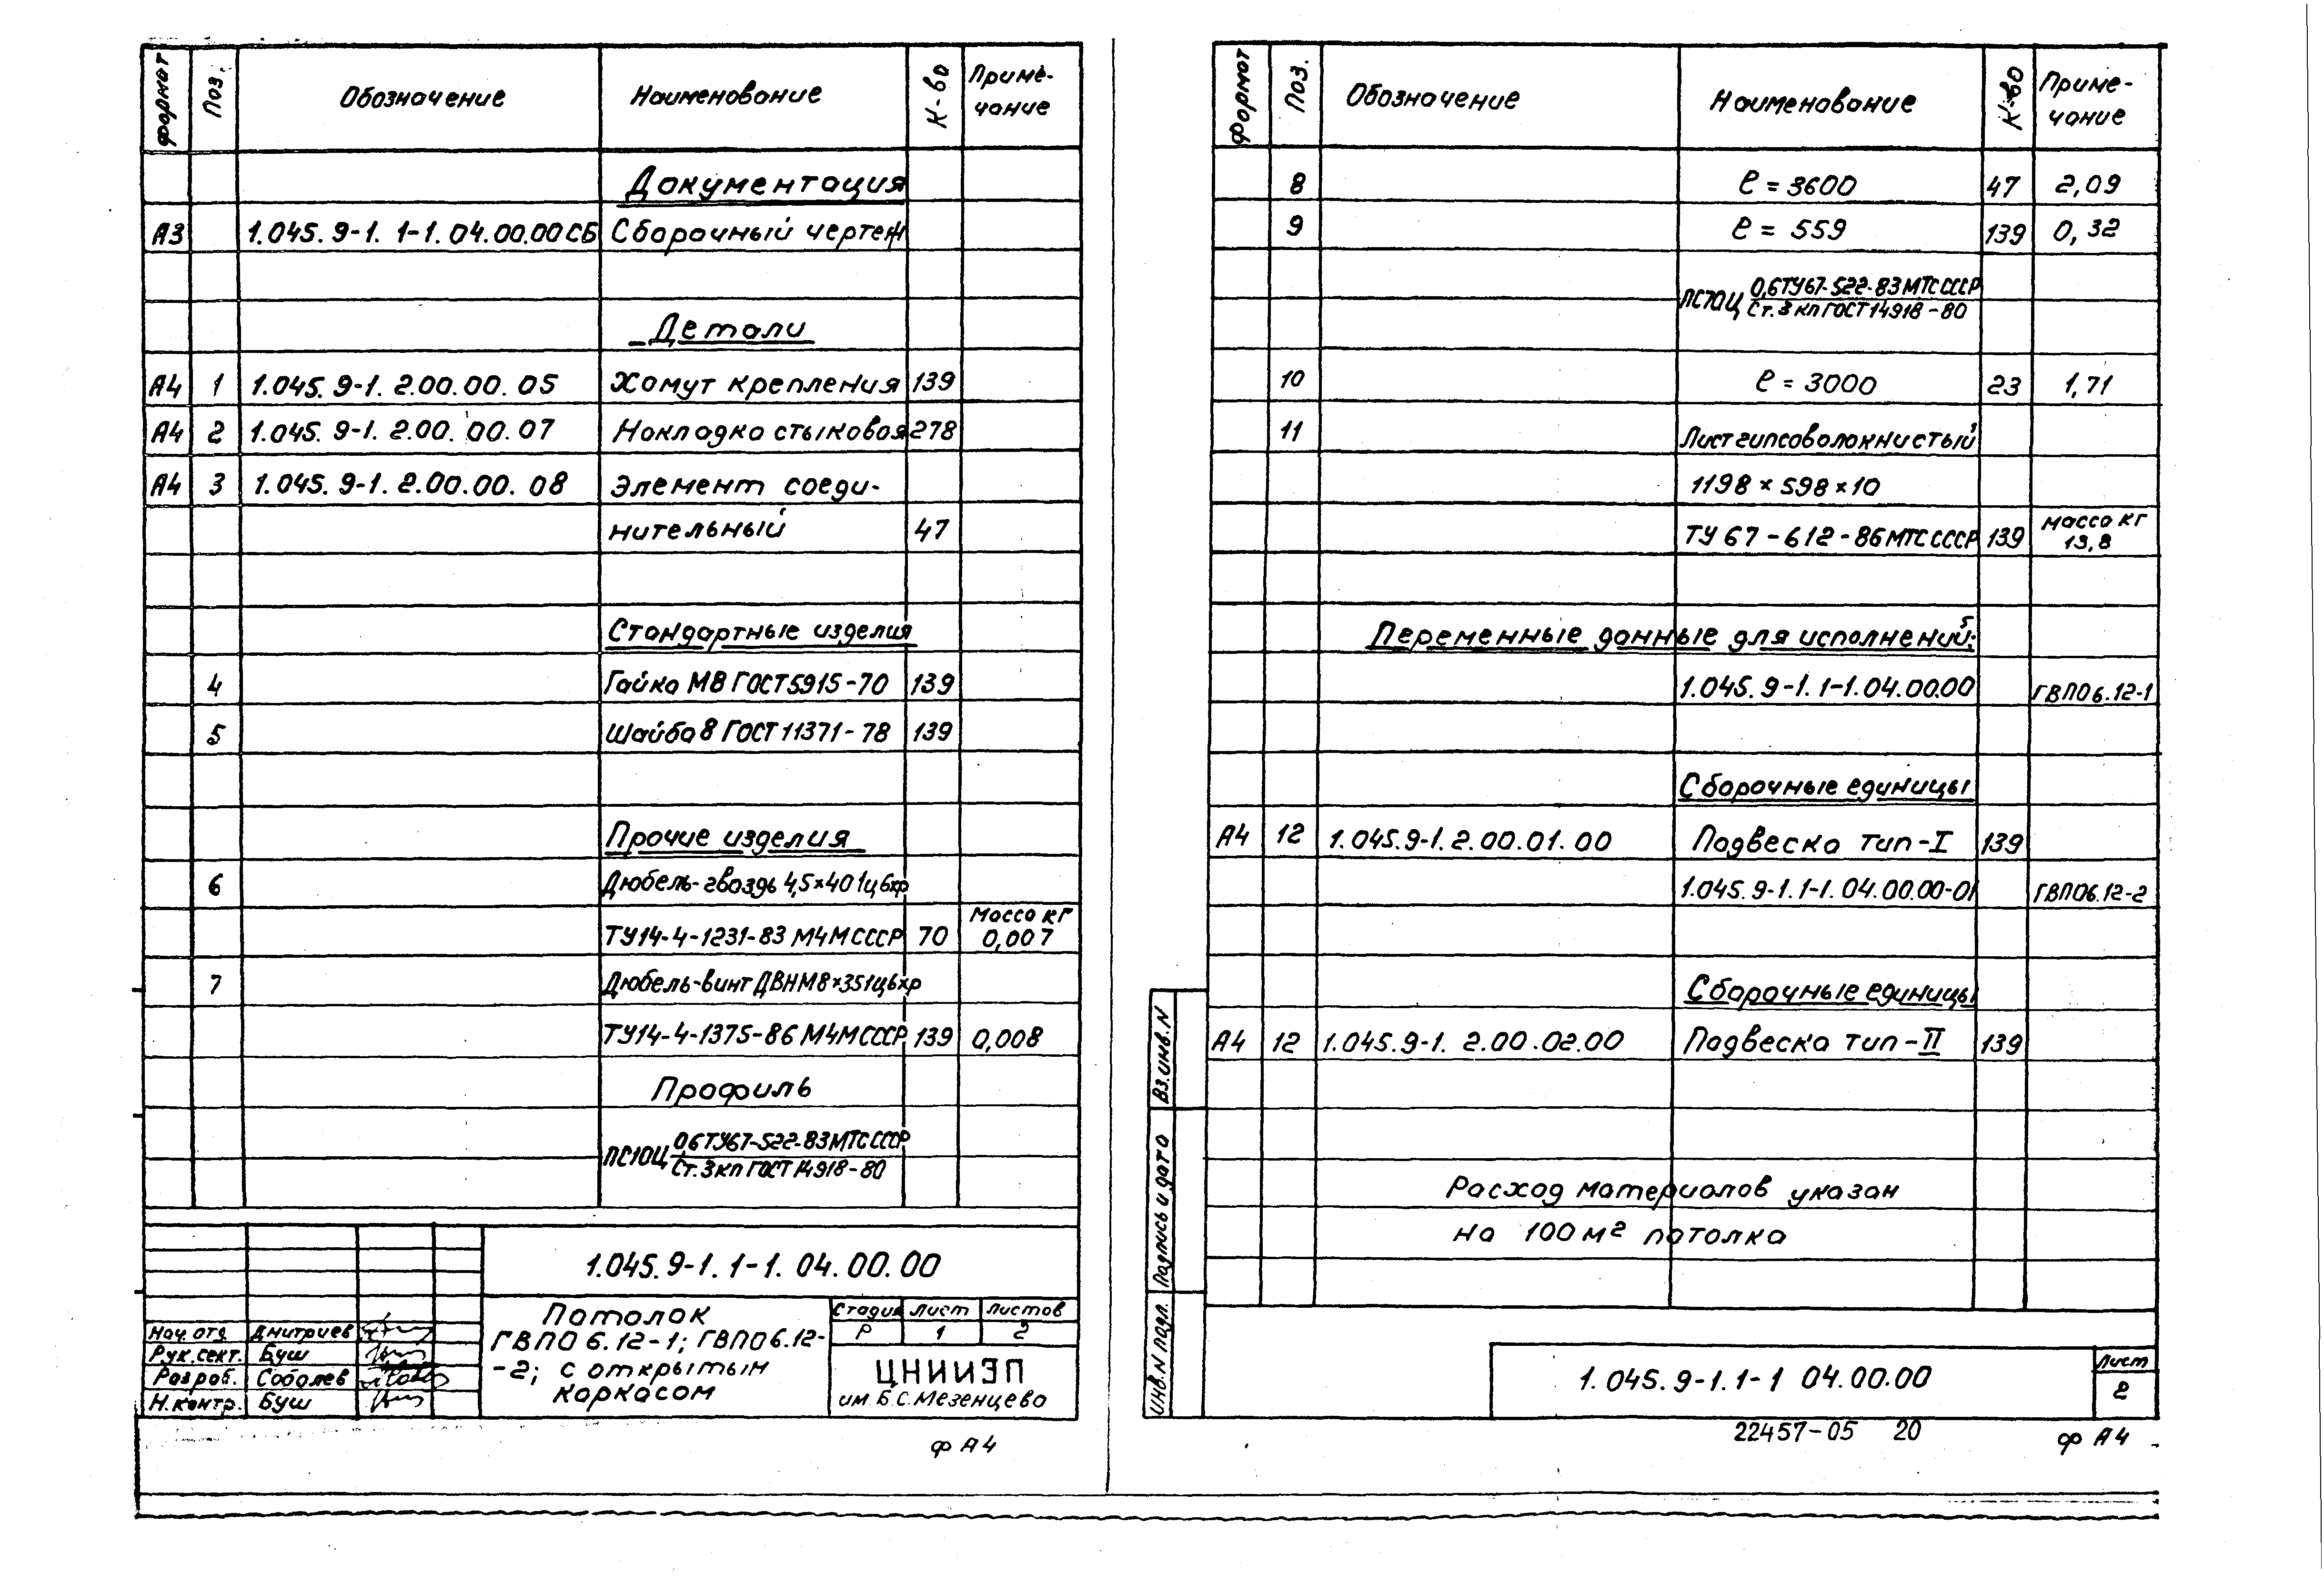 Формат Поз. Обозначение Наименование К-во Приме-
чание
Документация
А3 1.045.9-1. 1-1. 04.00.00СБ Сборочный чертеж
Детали
А4 1 1.045.9-1. 2.00.00.05 Хомут крепления 139
А4 2 1.045.9-1. 2.00.00.07 Накладка стыковая 278
А4 3 1.045.9-1. 2.00.00.08 Элемент соеди-
нительный 47
Стандартные изделия
4 Гайка М8 ГОСТ 5915-70 139
5 Шайба 8 ГОСТ 11371-78 139
Прочие изделия
6 Дюбель-гвоздь 4,5×40 1ц 6хр
Масса кг
ТУ14-4-1231-83 МЧМ СССР 70 0,007
7 Дюбель-винт ДВНМ8×35 1ц 6хр
ТУ14-4-1375-86 МЧМ СССР 139 0,008
Профиль
ПС10Ц 0,6ТУ67-522-83 МТС СССР
Ст.3кп ГОСТ 14918-80
1.045.9-1. 1-1. 04.00.00
Потолок
ГВПО 6.12-1; ГВПО6.12-
-2; с открытым
каркасом
Стадия Лист Листов
Р 1 2
ЦНИИЭП
им. Б.С. Мезенцева
Нач. отд. Дмитриев
Рук. сект. Буш
Разраб. Соболев
Н. контр. Буш
ф А4
Формат Поз. Обозначение Наименование К-во Приме-
чание
8 ℓ = 3600 47 2,09
9 ℓ = 559 139 0,32
ПС70Ц 0,6ТУ67-522-83 МТС СССР
Ст.3кп ГОСТ 14918-80
10 ℓ = 3000 23 1,71
11 Лист гипсоволокнистый
1198 × 598 × 10
ТУ 67-612-86 МТС СССР 139 Масса кг
13,8
Переменные данные для исполнений:
1.045.9-1. 1-1.04.00.00 ГВПО6.12-1
Сборочные единицы
А4 12 1.045.9-1. 2.00.01.00 Подвеска тип-I 139
1.045.9-1. 1-1. 04.00.00-01 ГВПО6.12-2
Сборочные единицы
А4 12 1.045.9-1. 2.00.02.00 Подвеска тип-II 139
Расход материалов указан
на 100 м² потолка
Вз.инв.N
Подпись и дата
Инв.N подл.
1.045.9-1. 1-1 04.00.00
Лист
2
22457-05 20
ф А4